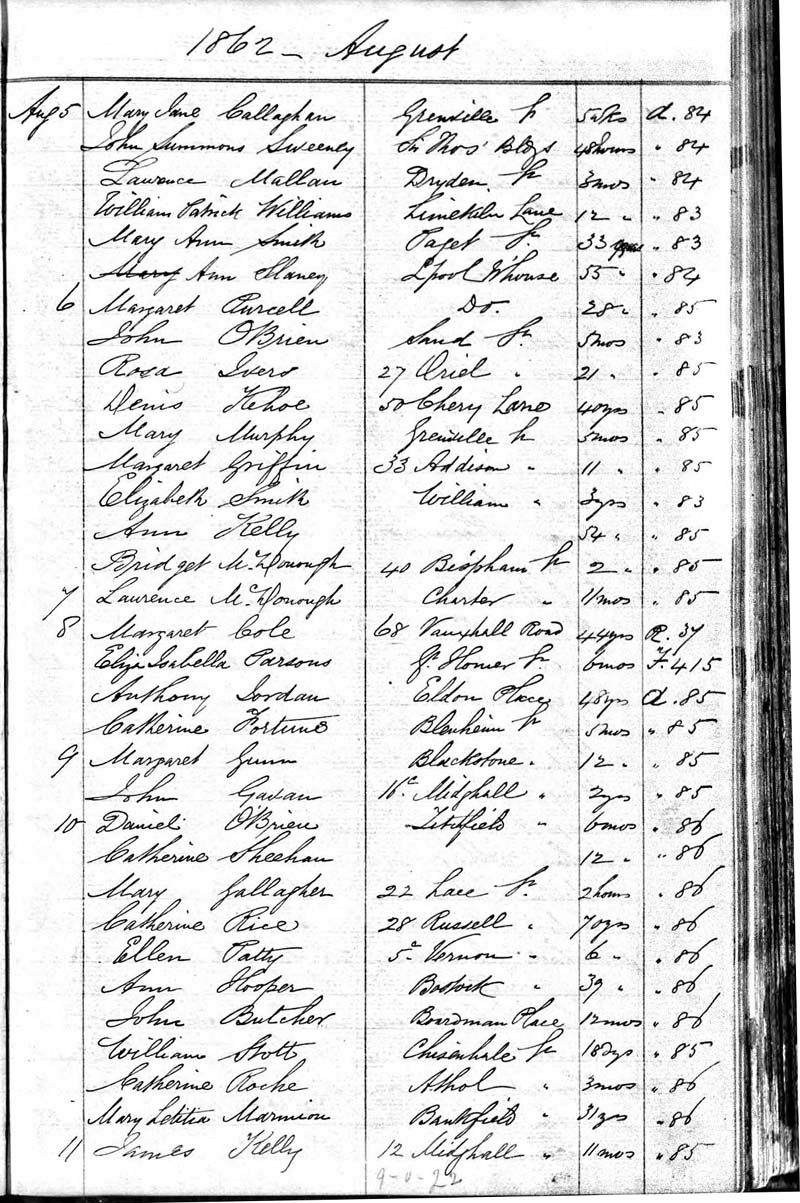 1862 - August
Aug 5 Mary Jane Callaghan Grenville St 5 wks A. 84
John Summons Sweeney Sir Thos' Bldgs 48 hours " 84
Lawrence Mallan Dryden St 3 mos " 84
William Patrick Williams Limekiln Lane 12 " " 83
Mary Ann Smith Paget St 33 yrs " 83
Mary Ann Slaney L'pool W'house 55 " " 84
6 Margaret Purcell Do. 28 " " 85
John O'Brien Sand St 5 mos " 83
Rosa Ivers 27 Oriel " 21 " " 85
Denis Kehoe 50 Chery Lane 40 yrs " 85
Mary Murphy Grenville St 5 mos " 85
Margaret Griffin 33 Addison " 11 " " 85
Elizabeth Smith William " 3 yrs " 83
Ann Kelly 54 " " 85
Bridget McDonough 40 Bispham St 2 " " 85
7 Laurence McDonough Charter " 11 mos " 85
8 Margaret Cole 68 Vauxhall Road 44 yrs R. 37
Eliza Isabella Parsons Gt Homer St 6 mos F. 415
Anthony Jordan Eldon Place 48 yrs A. 85
Catherine Fortune Blenheim St 5 mos " 85
9 Margaret Gunn Blackstone " 12 " " 85
John Gavan 16c Midghall " 2 yrs " 85
10 Daniel O'Brien Titchfield " 6 mos " 86
Catherine Sheehan 12 " " 86
Mary Gallagher 22 Lace St 2 hours " 86
Catherine Rice 28 Russell " 70 yrs " 86
Ellen Patty 5c Vernon " 6 " " 86
Ann Hooper Bostock " 39 " " 86
John Butcher Boardman Place 12 mos " 86
William Stott Chisenhale St 18 dys " 85
Catherine Roche Athol " 3 mos " 86
Mary Letitia Marmion Bankfield " 31 yrs " 86
11 James Kelly 12 Midghall " 11 mos " 85
9-0-22